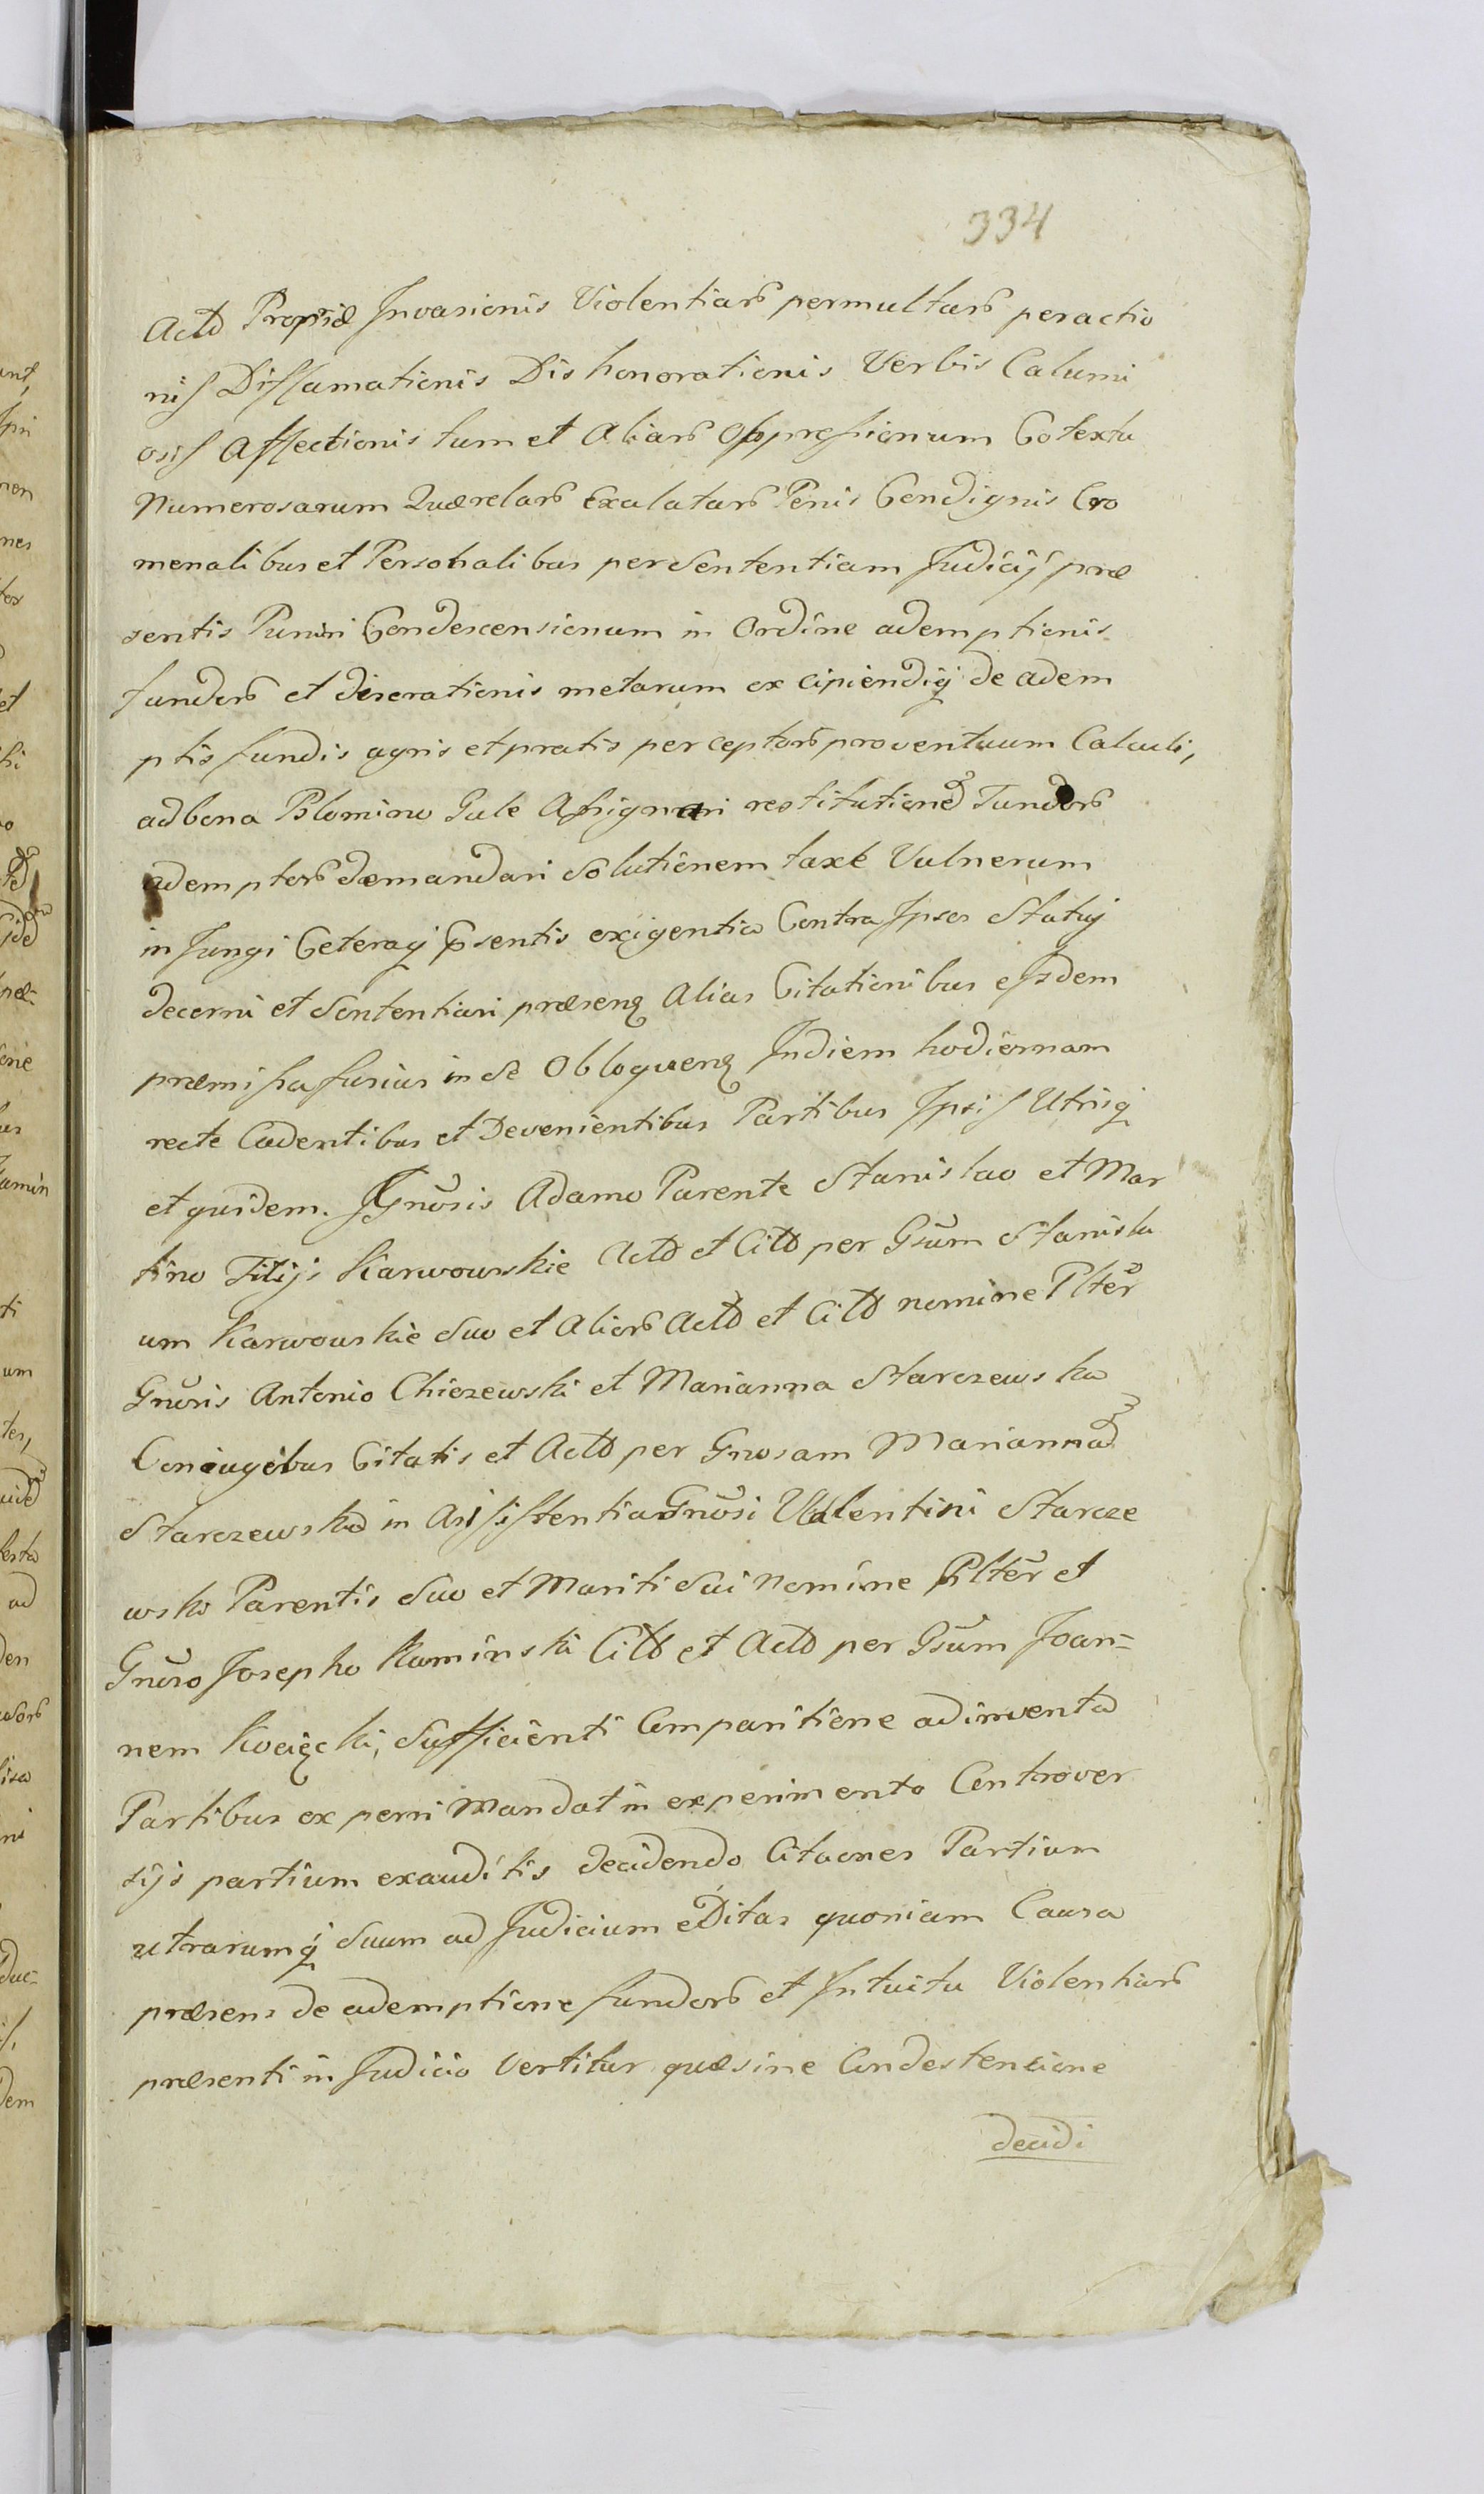 334
Actō Propriæ Invasionis Violentiarō permultarō peractio
nis Diffamationis Dishonorationis Verbis Calumi
osis Affectionis tum et Aliarō Oppressionum Cotextu
Numerosarum Quærelarō Exalatarō Penis Condignis Cro
menalibus et Personalibus per Sententiam Judicij præ
sentis Puniri Condescensionum in Ordine ademptionis
fundorō et diserationis metarum excipiendiq de adem
ptis fundis agris et pratis perceptorō proventuum Calculi,
ad bona Plomino Gule Assignari restitutionē fundorō
ademptorō demandari Solutionem taxæ Vulnerum
injungi Ceteraq Psentis exigentia Contra Ipsos Statuj
decerni et Sententiari præsenq Alias Citationibus eisdem
præmissa fusius in Se Obloquenq In diem hodiernam
recte Cadentibus et Devenientibus Partibus Ipsis Utriq
et quidem. Gnōsis Adamo Parente Stanislao et Mar
tino Filijs Karwowskie Actō et Citō per Gsum Stanisla
um Karwowskie Suo et Aliorō Actō et Citō nomine Pltēr
Gnōsis Antonio Chiezewski et Marianna Starczewska
Coniugibus Citatis et Actō per Gnosam Mariannā
Starczewską in Assistentia Gnōsi Valentini Starcze
wski Parentis Suo et Mariti Sui Nomine Pltēr et
Gnōso Josepho Kaminski Citō et Actō per Gsum Joan=
nem Kocięcki, Sufficienti Comparitione adinventa
Partibus experri Mandat in experimento Controver
sijs partium exauditis decidendo Citaones Partium
utrarumq Suum ad Judicium eDitas quoniam Causa
præsens de ademptione fundorō et Intuitu Violentiarō
præsenti in Judicio Vertitur quæ sine Condestensione
decidi